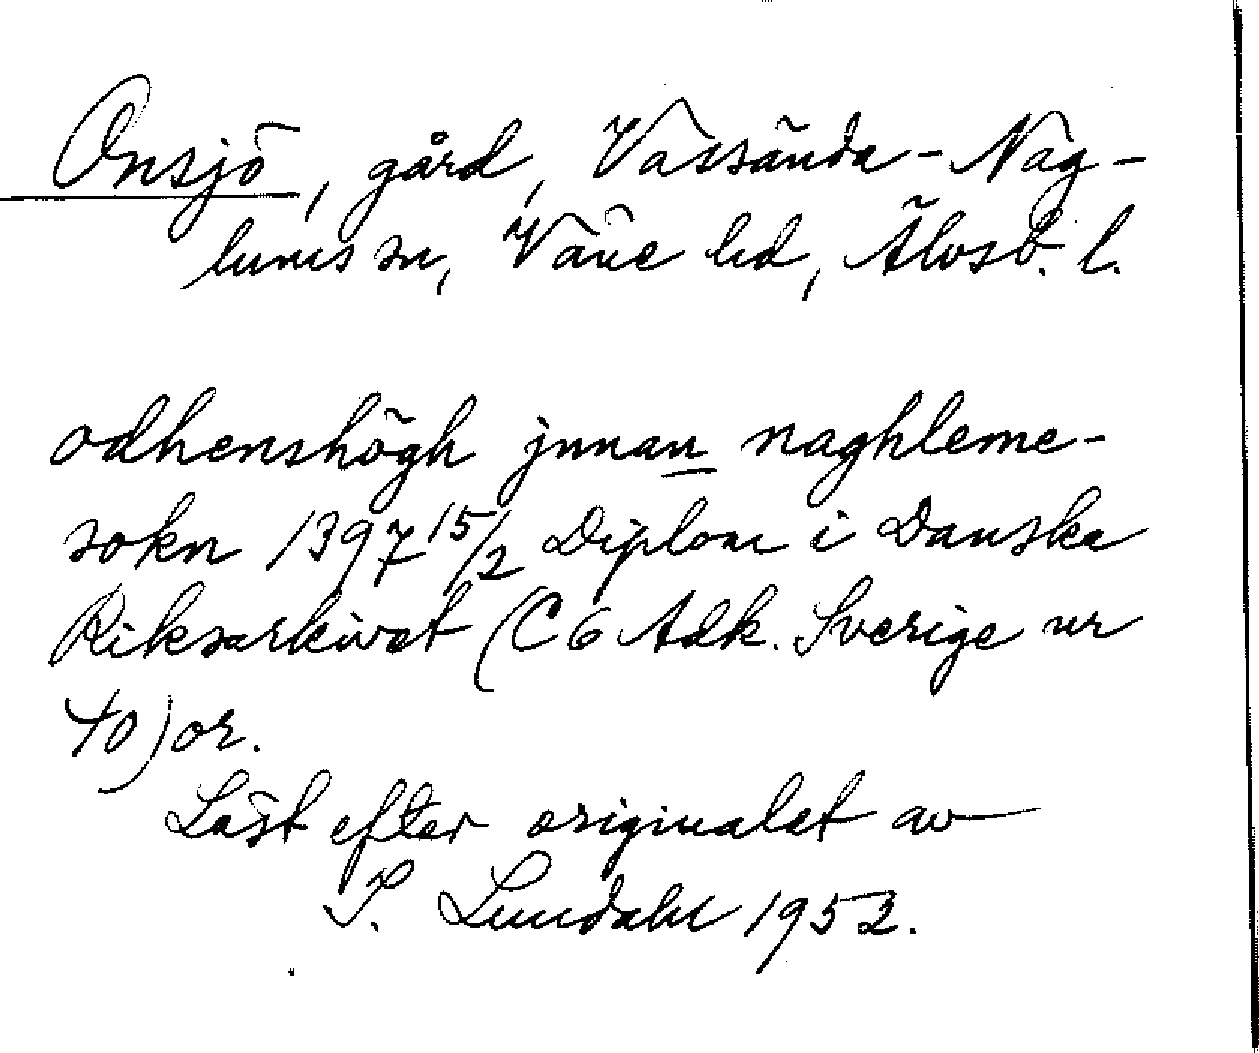 Onsjö, gård, Vassända-Nag-
lums sn, Väne hd, Älvsb. l.
odhenshögh jnnan naghleme-
sokn 1397 15/2 Diplom i Danska
Riksarkivet (C6 Adk. Sverige nr
40) or.
Läst efter originalet av
I. Lundahl 1953.